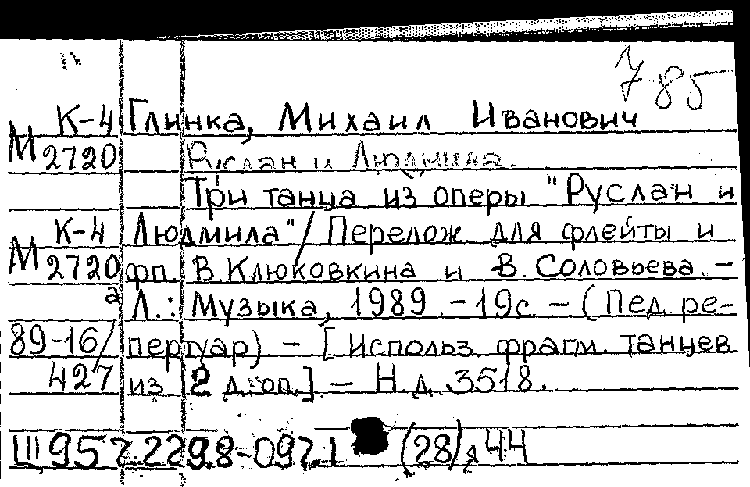 785
К-4 Глинка, Михаил Иванович
М 2720 Руслан и Людмила.
Три танца из оперы "Руслан и
К-4 Людмила"/ Перелож для флейты и
М 2720 фп. В. Клюковкина и В. Соловьева. -
а Л.: Музыка, 1989. - 19с - (Пед. ре-
89-16/ пертуар) - [Использ. фрагм. танцев
427 из 2 д. оп.] - Н.д. 3518.
Щ957.229.8-097.1 (28)я44